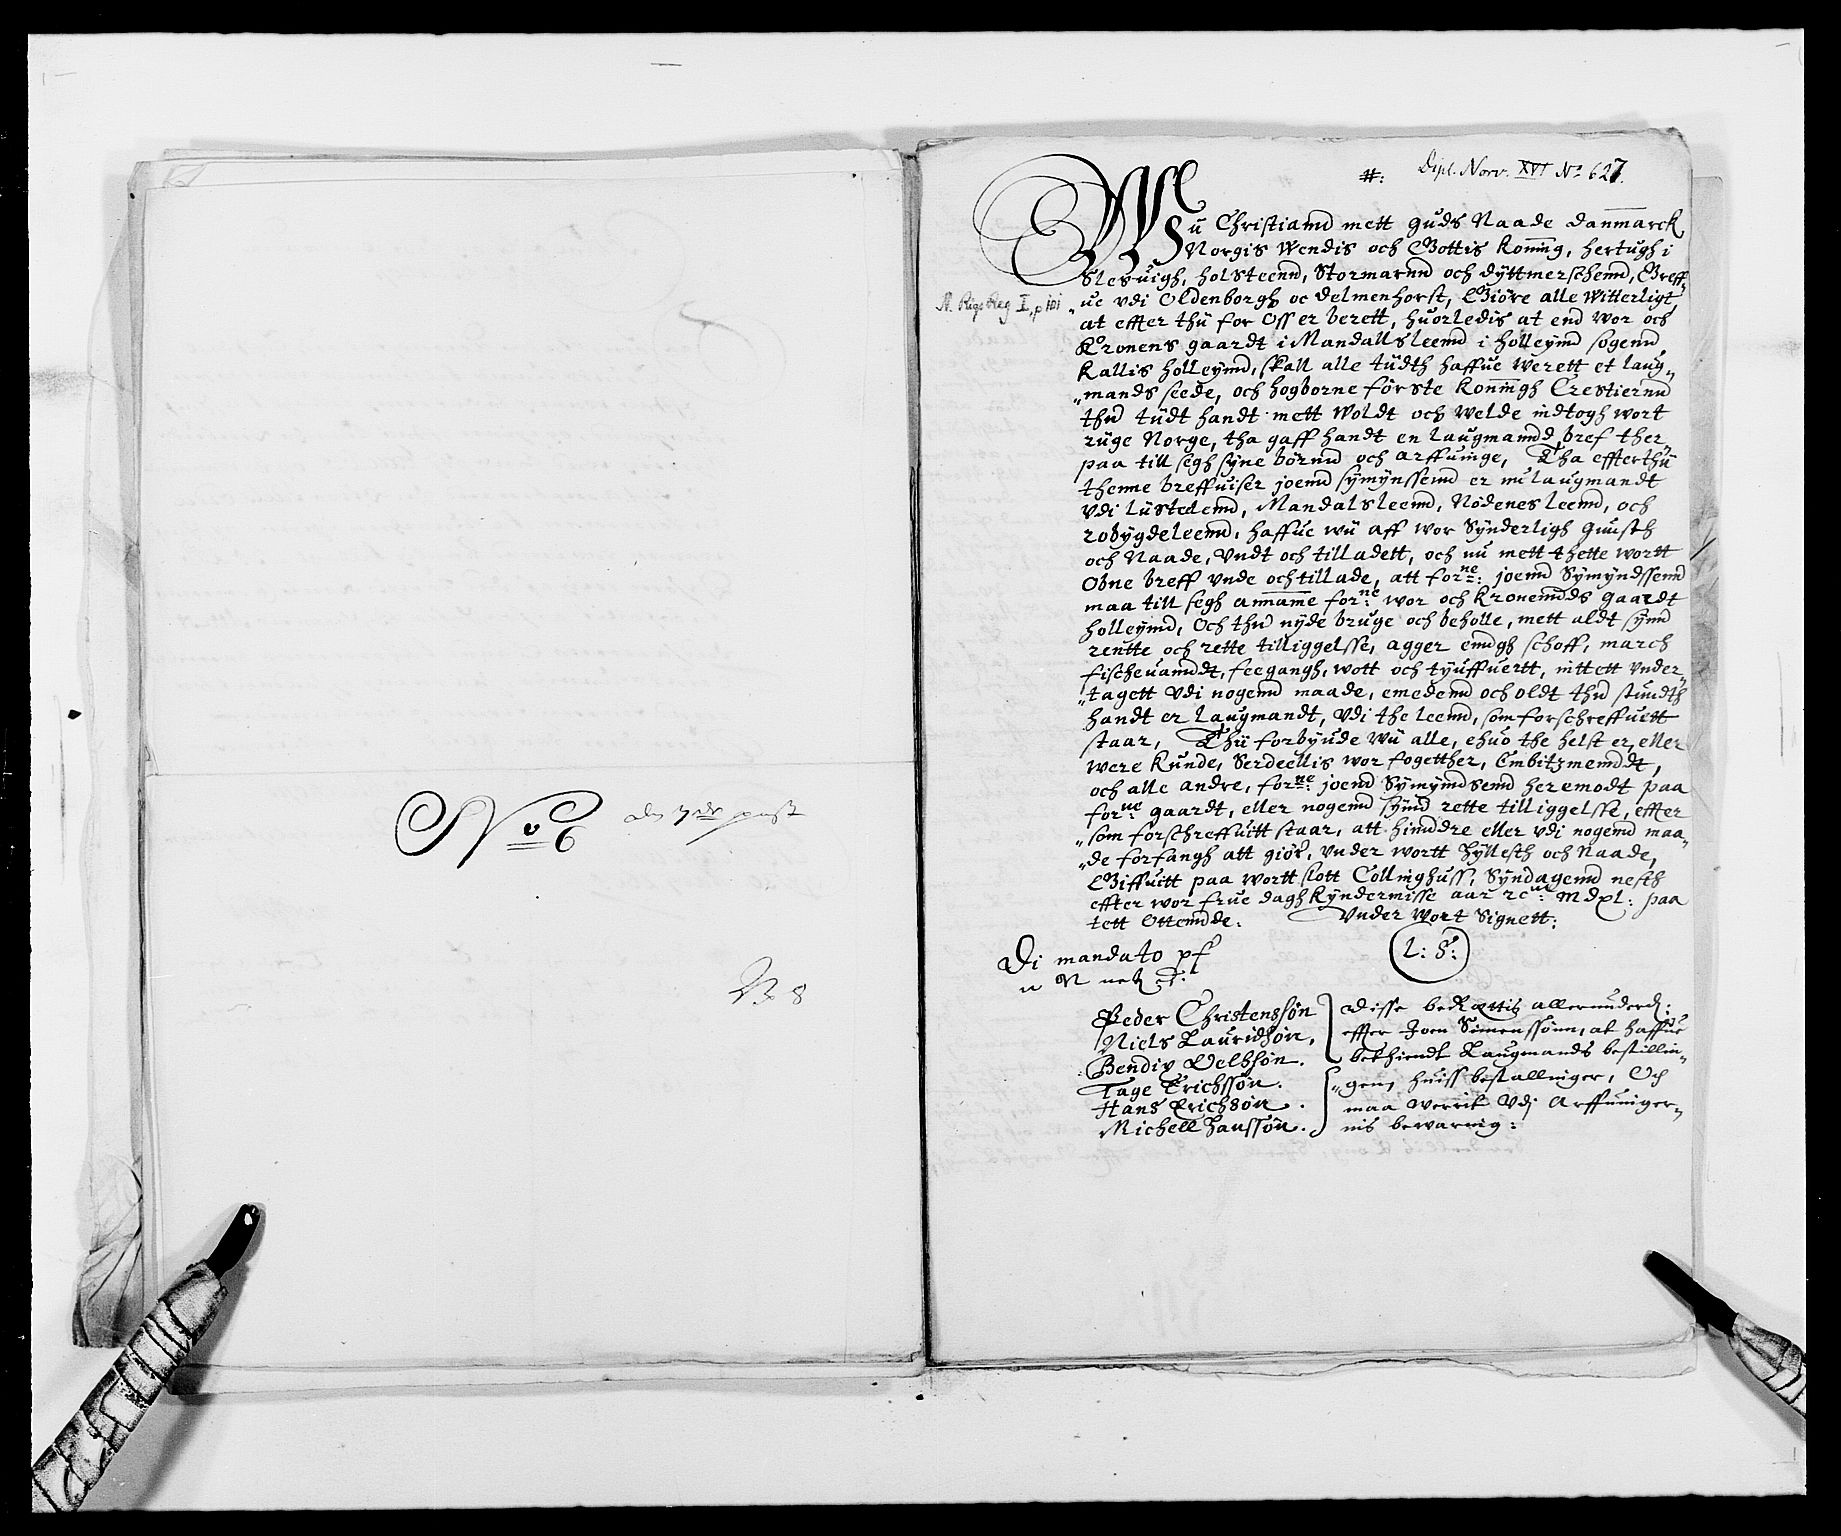 No 6
des 7de post
N. 8
#:
Dipl. Norv. XVI No 627.
N. Rigs Reg I, p 101
Wÿ Christiannd mett Guds Naade Danmarck
Norgis Wendis och Gottis Konning, hertugh i
Slesuigh, holsteend, Stormarnd och dÿttmerschennd, Greff„
„ue vdi Oldenborgh oc delmenhorst, Giöre alle Witterligt
at effter thÿ for Oss er berett, huorledis at end wor och
Kronens gaardt i Mandallsleend i holleÿmd sogend
Kallis holleÿmd, skall alle tÿdth haffue werett et laug„
„mands seede, och hogborne förste Konningh Crestiernd
thnd tÿdt handt mett Woldt och Welde indtogh wort
rÿge Norge, tha gaff handt en Laugmamdd bref ther„
paa till segh sÿne börnnd och arffuinge, Tha effterthÿ
thenne breffuiser joend sÿmÿnssemd er nu laugmandt
vdi Lÿstelemd, Mandalsleemd, Nödenesleemd, och
robÿgdeleemd, haffue wÿ aff wor Sÿnderligh gunsth
och Naade, vndt och tilladett, och nu mett thette wortt
Obne breff vnde och tillade, att forne: joend Sÿmÿndssemd
maa till segh anname forne: wor och Kronemdds gaardt
holleÿmd, Och thnd nÿde bruge och beholle, mett aldt sÿnd
rentte och rette tilliggelsse, agger emdgh schoff, march
fischeuamddt, feegangh, wott och tÿuffuertt, inttett vnder„
„tagett vdi nogemd maade, emedemd och oldt thnd stundth
handt er Laugmandt, vdi the leemd, som forschreffuett
staar, Thÿ forbÿude wÿ alle, ehuo the helst er, eller
were Kunde, Serdeellis wor fogetther, Embitzmemddt,
och alle andre, forne: joend Sÿmÿmdsemd heremodt paa
forne gaardt, eller nogemd sÿnd rette tilliggelsse, effter
„som forschreffuitt staar, att himddre eller vdi nogemd maa„
„de forfangh att giör, vnder wortt hÿllesth och Naade,
Giffuitt paa wortt slott Collinghuss, Sÿndagemd nesth
effter wor frue dagh Kÿndermisse aar rc: Mdxl: paa
tett Ottemdde. Vnder wort Signett:
Di mandato pf
L: S:
Peder Christenssön
Niels Lauridsön,
Bendix Velhsön.
Tage Erichssön.
Hans Erichsön.
Michell Hanssön.
disse
effter Joen Simenssönn, at haffue
bethiendt Laugmands bestillin„
„gen, huiss bestallinger, Och
maa werrit vdj Arffuinger„
nis bewaring: